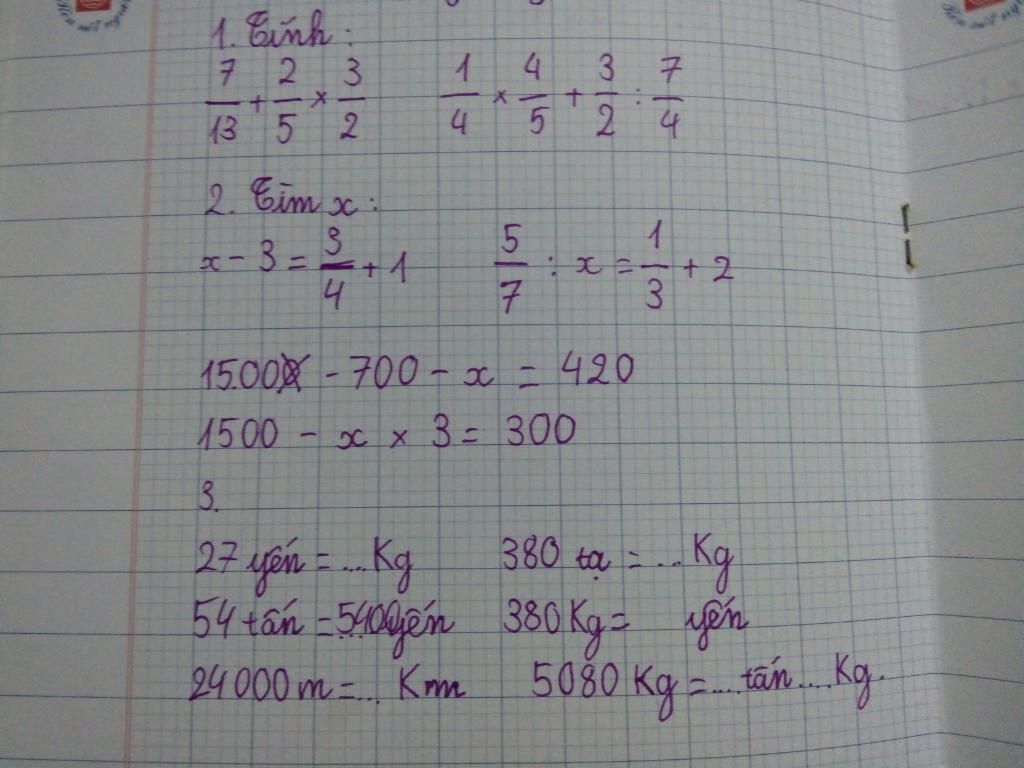 1. Tính:
7/13 + 2/5 × 3/2    1/4 × 4/5 + 3/2 : 7/4
2. Tìm x:
x - 3 = 3/4 + 1    5/7 : x = 1/3 + 2
1500 - 700 - x = 420
1500 - x × 3 = 300
3.
27 yến = ... Kg    380 tạ = ... Kg
54 tấn = 5400 yến    380 Kg = yến
24000 m = ... Km    5080 Kg = ... tấn ... Kg.